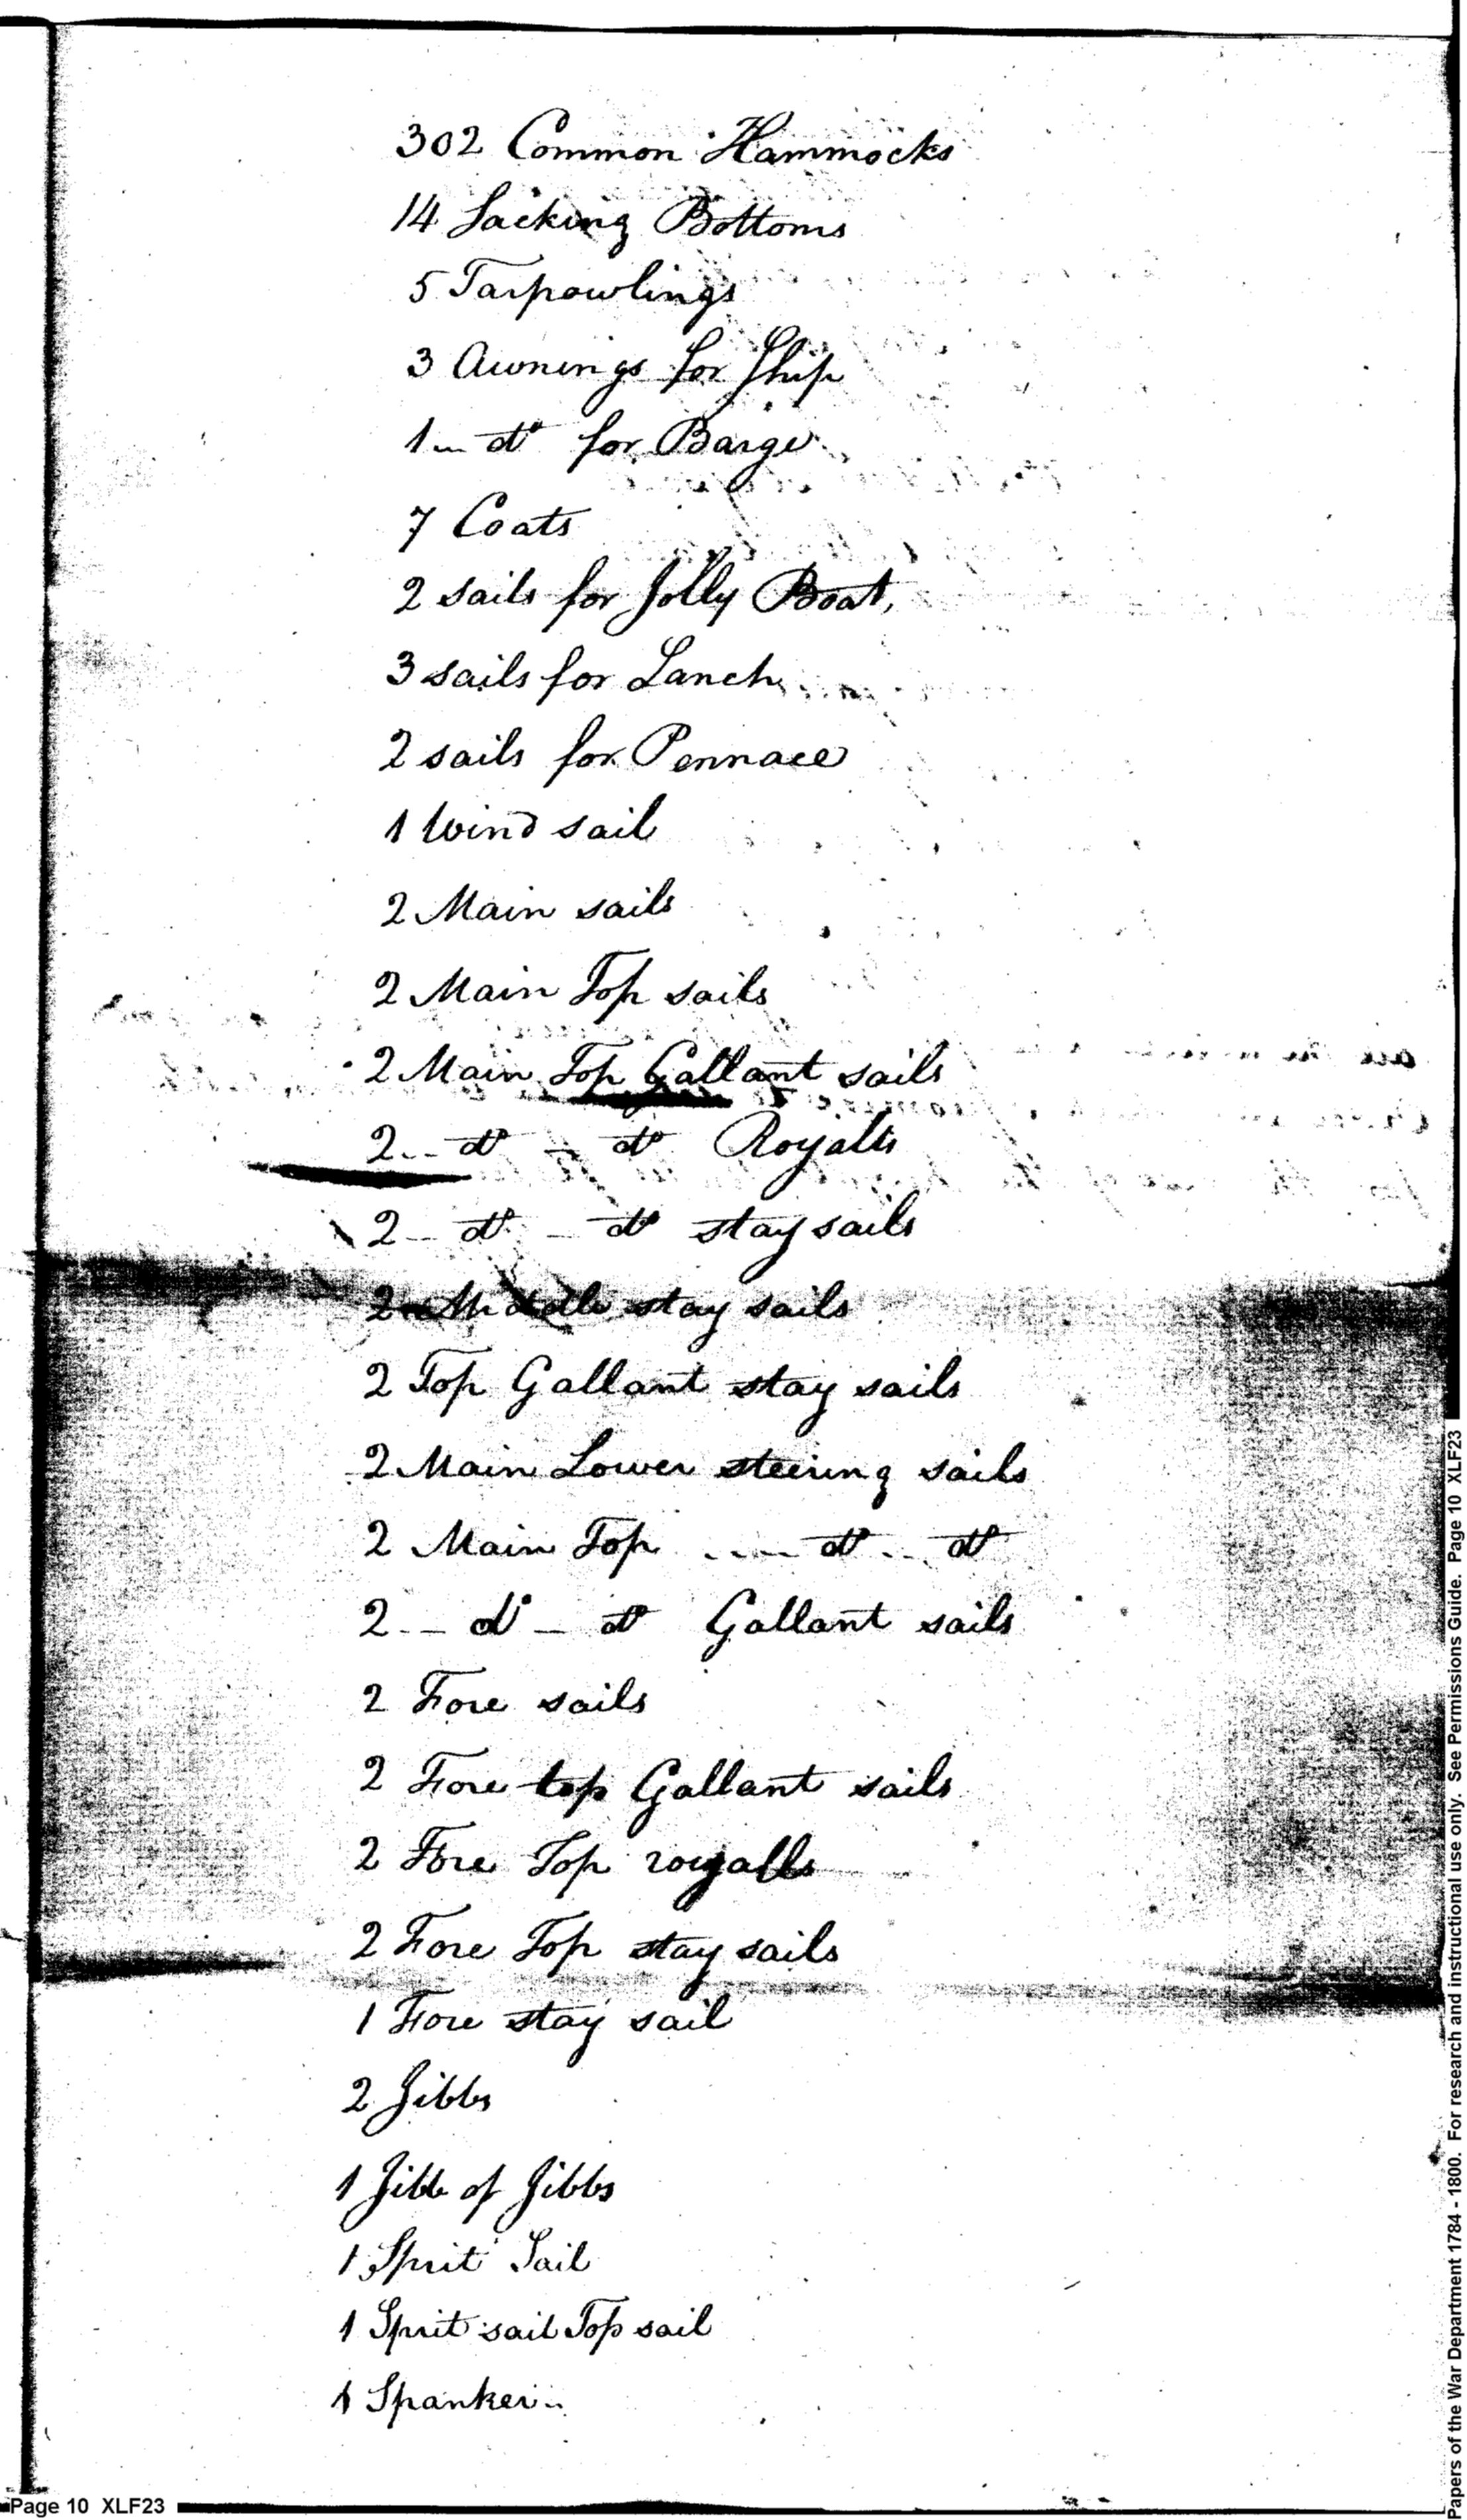 302 Common Hammocks
14 Sacking Bottoms
5 Tarpowlings
3 Awnings for Ship
1 -- do for Barge
7 Coats
2 sails for Jolly Boat,
3 sails for Lanch
2 sails for Pennace
1 Wind sail
2 Main sails
2 Main Top sails
2 Main Top Gallant sails
2 -- do - do Royalls
2 -- do - do stay sails
2 Middle stay sails
2 Top Gallant stay sails
2 Main Lower steering sails
2 Main Top ---- do -- do
2 -- do - do Gallant sails
2 Fore sails
2 Fore top Gallant sails
2 Fore Top royalls
2 Fore Top stay sails
1 Fore stay sail
2 Jibbs
1 Jibb of Jibbs
1 Sprit Sail
1 Sprit sail Top sail
1 Spanker
Page 10 XLF23
Papers of the War Department 1784 - 1800. For research and instructional use only. See Permissions Guide. Page 10 XLF23